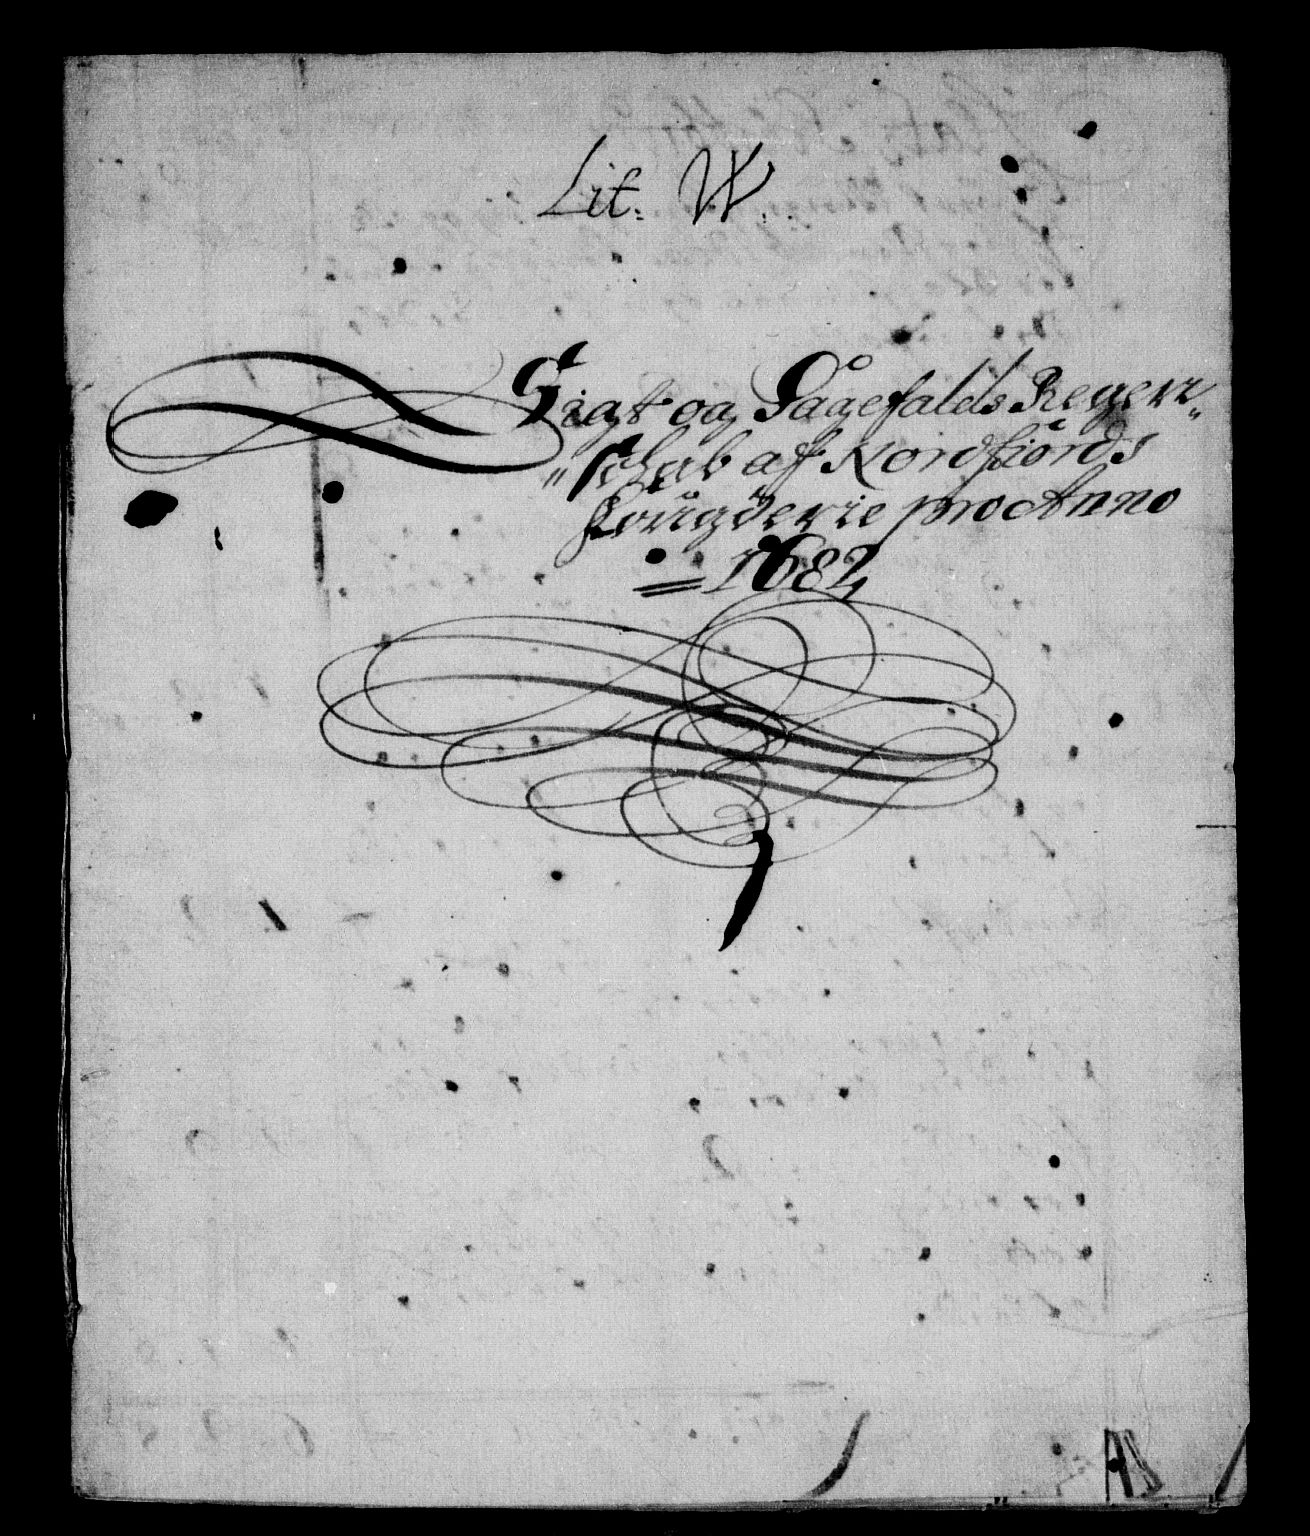 Lit. W.
Sigt og Sagefalds Regen„
„schab af Nordfiords
fougderie pro Anno
1682